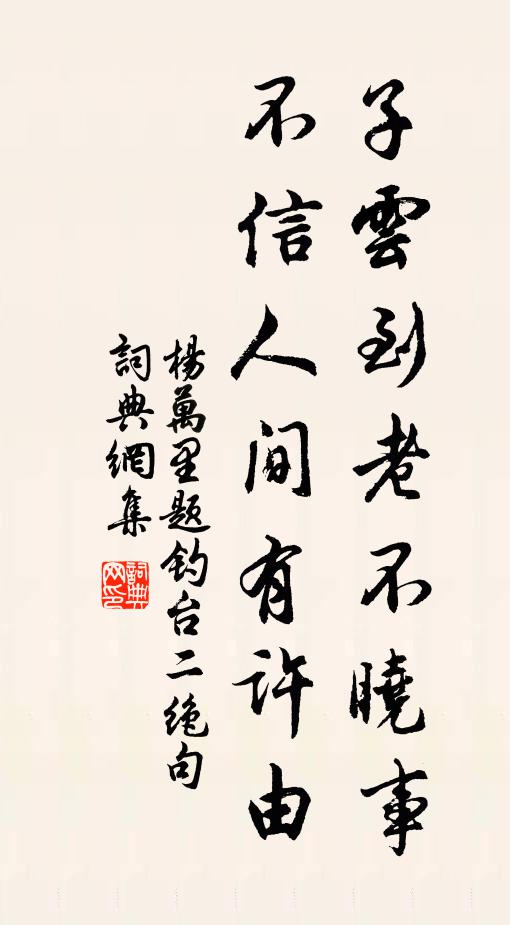 子雲到老不曉事
不信人间有许由
楊萬里题钓台二绝句
詞典網集
詞典网印